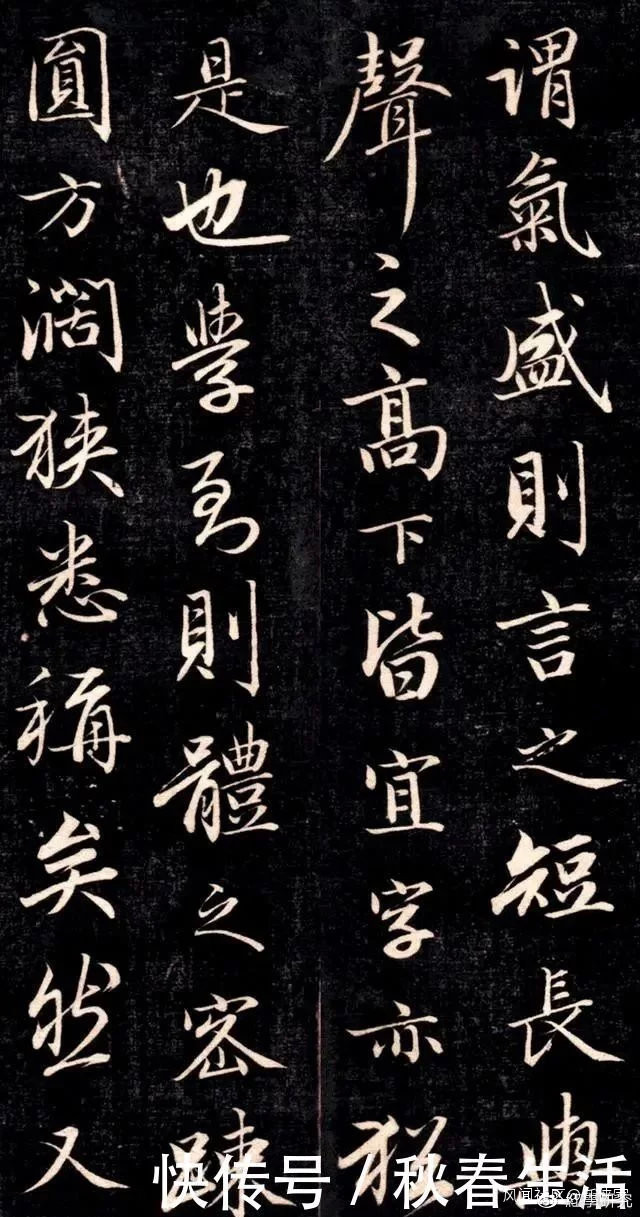 謂氣盛則言之短長與
聲之高下皆宜字亦猶
是也學到則體之密踈
圓方濶狹悉稱矣然又
快传号/秋春生活